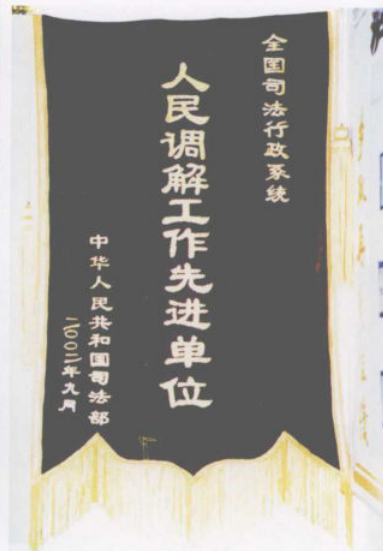 全国司法行政系统
人民调解工作先进单位
中华人民共和国司法部
二〇〇二年九月